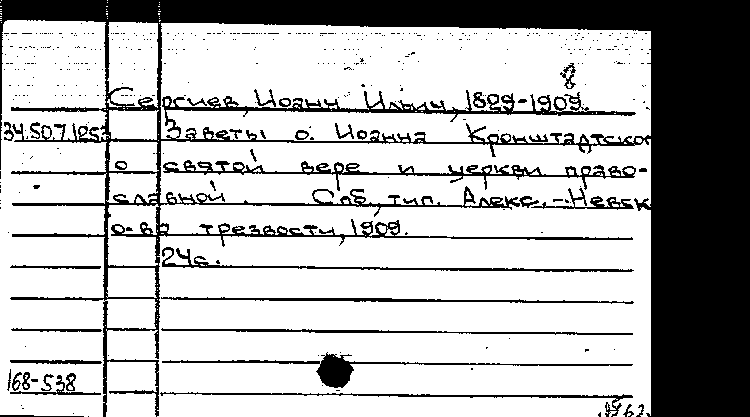 8
Сергиев, Иоанн Ильич, 1829-1909.
34.50.7.1253 Заветы о. Иоанна Кронштадтског
о святой вере и церкви право-
славной. Спб, тип. Алекс.-Невск
о-ва трезвости, 1909.
24с.
168-538